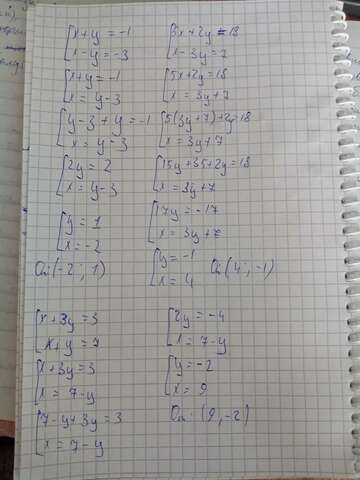 x+y = -1
x-y = -3
x+y = -1
x = y-3
y-3+y = -1
x = y-3
2y = 2
x = y-3
y = 1
x = -2
От: (-2; 1)
5x+2y = 18
x-3y = 7
5x+2y = 18
x = 3y+7
5(3y+7)+2y=18
x = 3y+7
15y+35+2y=18
x = 3y+7
17y = -17
x = 3y+7
y = -1
x = 4
От: (4; -1)
x+3y = 3
x+y = 7
x+3y = 3
x = 7-y
7-y+3y = 3
x = 7-y
2y = -4
x = 7-y
y = -2
x = 9
От: (9, -2)